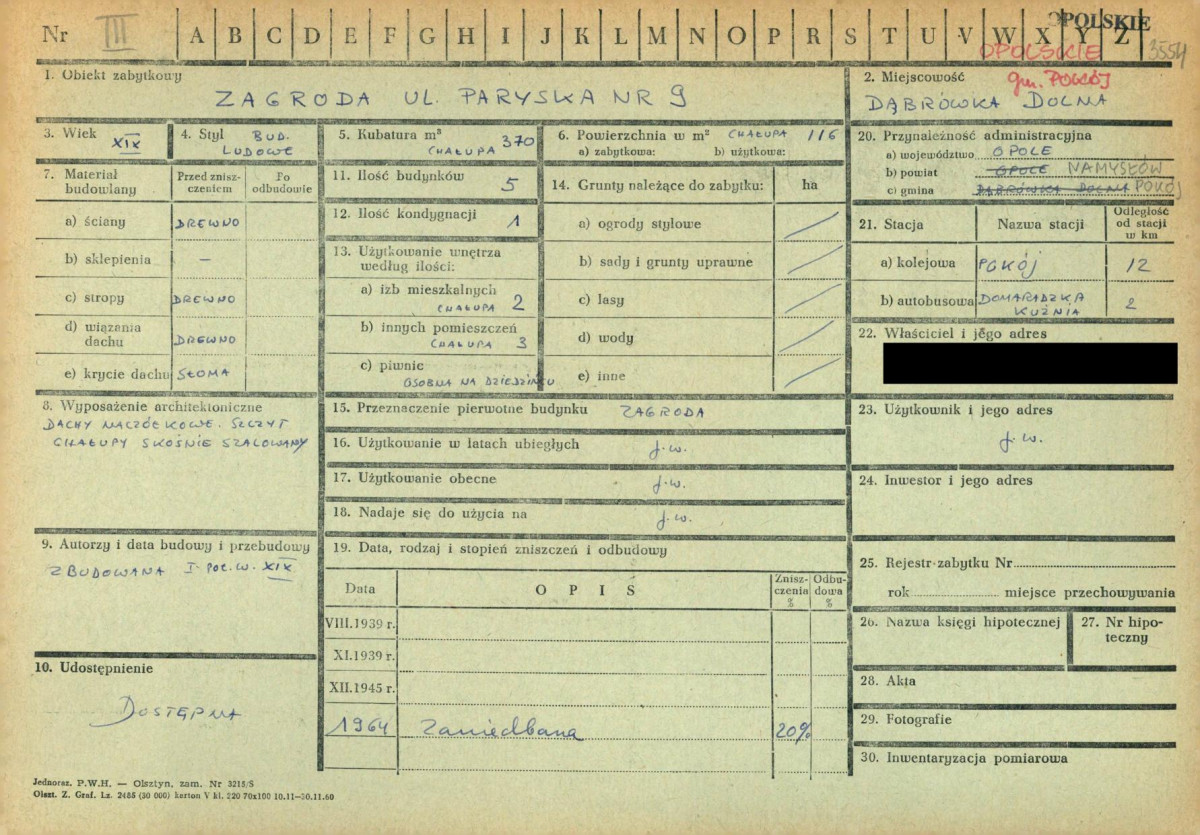 Nr III A B C D E F G H I J K L M N O P R S T U V W X Y Z OPOLSKIE
OPOLSKIE 3554
1. Obiekt zabytkowy
ZAGRODA UL. PARYSKA NR 9
2. Miejscowość gm. POKÓJ
DĄBRÓWKA DOLNA
3. Wiek XIX
4. Styl BUD. LUDOWE
5. Kubatura m³
CHAŁUPA 370
6. Powierzchnia w m² CHAŁUPA 116
a) zabytkowa: b) użytkowa:
7. Materiał budowlany
Przed zniszczeniem
Po odbudowie
a) ściany DREWNO
b) sklepienia —
c) stropy DREWNO
d) wiązania dachu DREWNO
e) krycie dachu SŁOMA
8. Wyposażenie architektoniczne
DACHY NACZÓŁKOWE. SZCZYT
CHAŁUPY SKOŚNIE SZALOWANY
9. Autorzy i data budowy i przebudowy
ZBUDOWANA I POŁ. W. XIX
10. Udostępnienie
DOSTĘPNA
11. Ilość budynków 5
12. Ilość kondygnacji 1
13. Użytkowanie wnętrza
według ilości:
a) izb mieszkalnych
CHAŁUPA 2
b) innych pomieszczeń
CHAŁUPA 3
c) piwnic
OSOBNA NA DZIEDZIŃCU
14. Grunty należące do zabytku: ha
a) ogrody stylowe
b) sady i grunty uprawne
c) lasy
d) wody
e) inne
15. Przeznaczenie pierwotne budynku ZAGRODA
16. Użytkowanie w latach ubiegłych j.w.
17. Użytkowanie obecne j.w.
18. Nadaje się do użycia na j.w.
19. Data, rodzaj i stopień zniszczeń i odbudowy
Data OPIS Zniszczenia % Odbudowa %
VIII.1939 r.
XI.1939 r.
XII.1945 r.
1964 Zaniedbana 20%
20. Przynależność administracyjna
a) województwo OPOLE
b) powiat OPOLE NAMYSŁÓW
c) gmina DĄBRÓWKA DOLNA POKÓJ
21. Stacja Nazwa stacji Odległość od stacji w km
a) kolejowa POKÓJ 12
b) autobusowa DOMARADZKA KUŹNIA 2
22. Właściciel i jego adres
23. Użytkownik i jego adres
j.w.
24. Inwestor i jego adres
25. Rejestr zabytku Nr
rok miejsce przechowywania
26. Nazwa księgi hipotecznej
27. Nr hipoteczny
28. Akta
29. Fotografie
30. Inwentaryzacja pomiarowa
Jednoraz. P.W.H. — Olsztyn, zam. Nr 3215/S
Olszt. Z. Graf. Lz. 2485 (30 000) karton V kl. 220 70x100 10.11—30.11.60